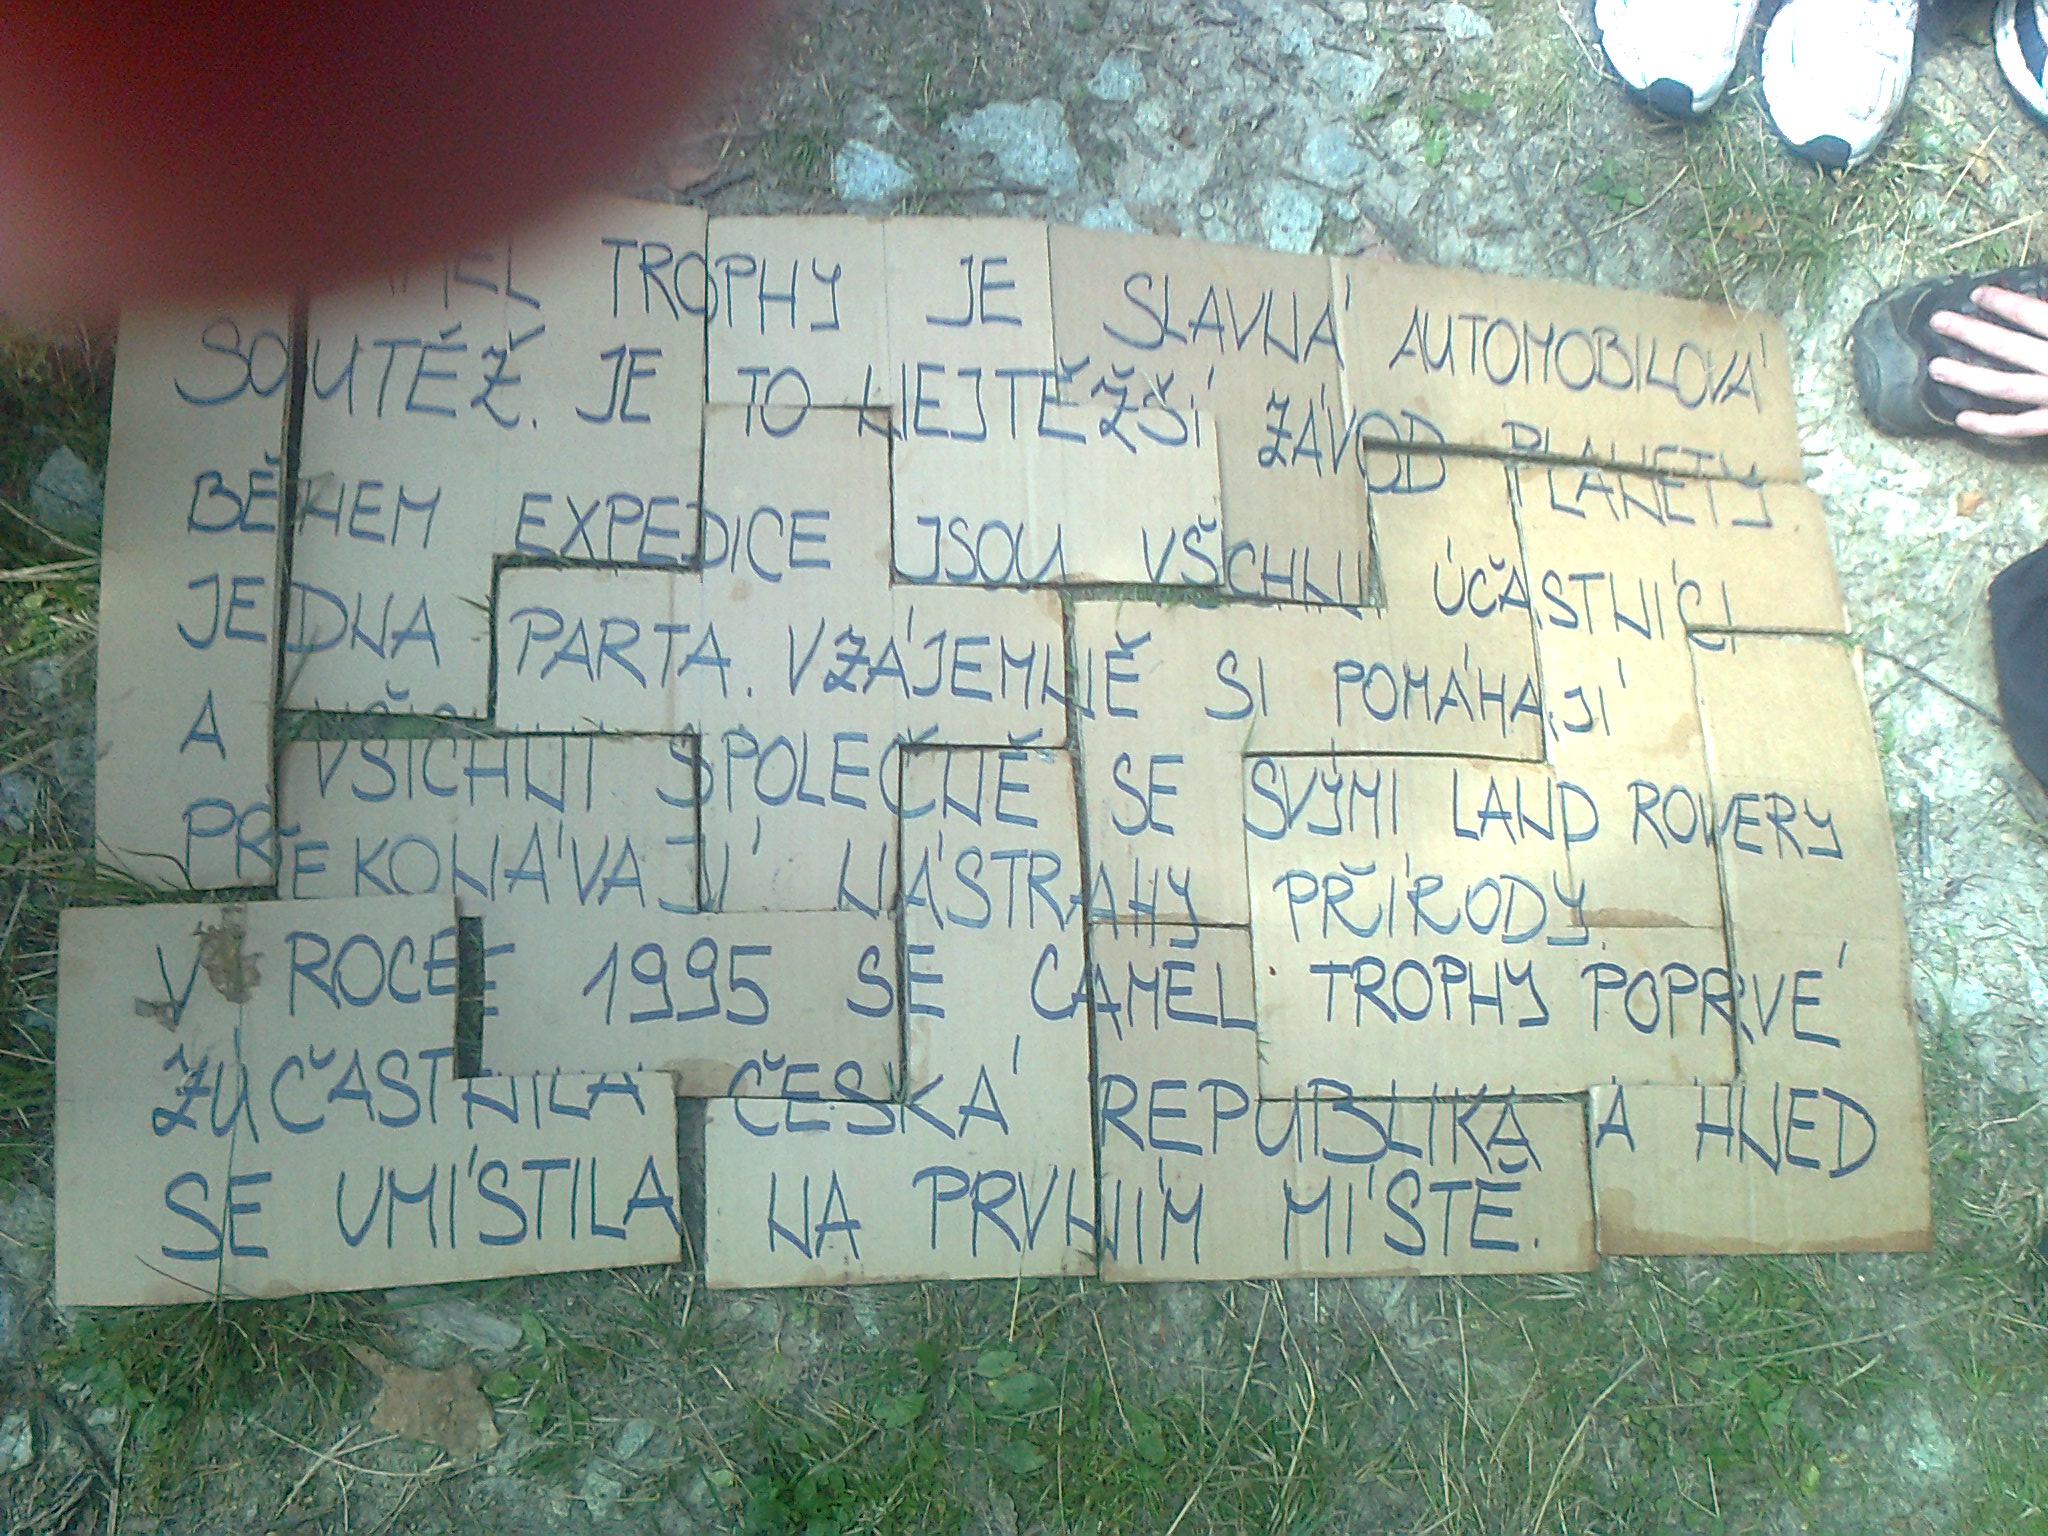 TROPHY JE SLAVNÁ AUTOMOBILOVÁ
SOUTĚŽ. JE TO NEJTĚŽŠÍ ZÁVOD PLANETY
BĚHEM EXPEDICE JSOU VŠICHNI ÚČASTNÍCI
JEDNA PARTA. VZÁJEMNĚ SI POMÁHAJÍ
A VŠICHNI SPOLEČNĚ SE SVÝMI LAND ROVERY
PŘEKONÁVAJÍ NÁSTRAHY PŘÍRODY.
V ROCE 1995 SE CAMEL TROPHY POPRVÉ
ZÚČASTNILA ČESKÁ REPUBLIKA A HNED
SE UMÍSTILA NA PRVNÍM MÍSTĚ.